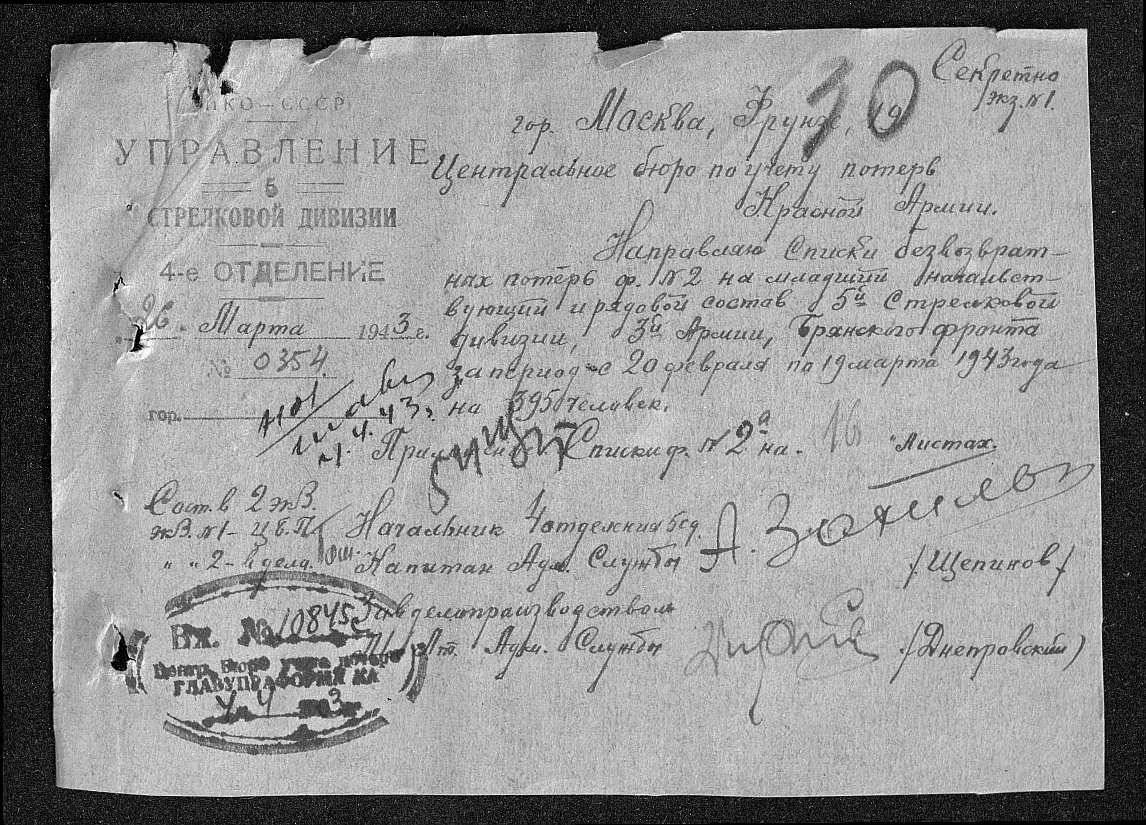 Секретно
экз. №1.
НКО-СССР
УПРАВЛЕНИЕ
5
СТРЕЛКОВОЙ ДИВИЗИИ
4-е ОТДЕЛЕНИЕ
26 Марта 1943 г.
№ 0354.
гор.
4.4.43г
гор. Москва, Фрунзе, 19
10
Центральное бюро по учету потерь
Красной Армии.
Направляю Списки безвозврат-
ных потерь ф. №2 на младший начальст-
вующий и рядовой состав 5й Стрелковой
дивизии, 3й Армии, Брянского фронта
за период с 20 февраля по 19 марта 1943 года
на 395 человек.
Списки ф. №2а на 16 Листах.
Сост. в 2 экз.
экз. №1 - Ц.Б.П.
" " 2 - в дела.
Начальник 4 отделения 5сд.
Капитан Адм. Службы
/Щепинов/
Завделопроизводством
Адм. Службы
(Днепровский)
Вх. № 10845с
Центр. Бюро учета потерь
ГЛАВУПРАФОРМА КА
4 4 3